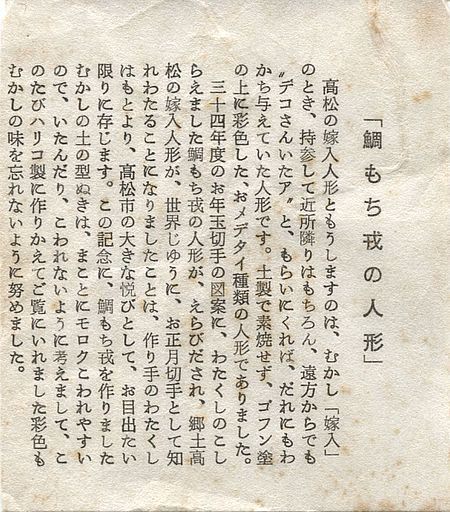 「鯛もち戎の人形」
高松の嫁入人形ともうしますのは、むかし「嫁入」
のとき、持参して近所隣りはもちろん、遠方からでも
〝デコさんいたア〟と、もらいにくれば、だれにもわ
かち与えていた人形です。土製で素焼せず、ゴフン塗
の上に彩色した、おメデタイ種類の人形でありました。
三十四年度のお年玉切手の図案に、わたくしのこし
らえました鯛もち戎の人形が、えらびだされ、郷土高
松の嫁入人形が、世界じゅうに、お正月切手として知
れわたることになりましたことは、作り手のわたくし
はもとより、高松市の大きな悦びとして、お目出たい
限りに存じます。この記念に、鯛もち戎を作りました
むかしの土の型ぬきは、まことにモロクこわれやすい
ので、いたんだり、こわれないように考えまして、こ
のたびハリコ製に作りかえてご覧にいれました彩色も
むかしの味を忘れないように努めました。